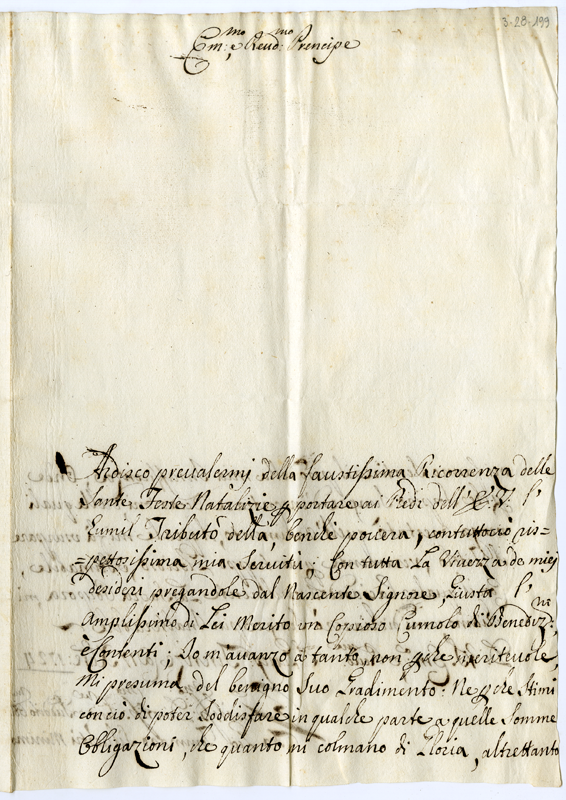 3-28-199
Em:mo e Reud:mo Principe
Ardisco preualermi della faustissima Ricorrenza delle
Sante Feste Natalizie p portare ai Piedi dell' E. V. l'
humil Tributo della, benche pouera, contuttociò ris=
=pettosissima mia Seruitù; Con tutta La Viuezza de miej
desideri pregandole dal Nascente Signore, Giusta l'
Amplissimo di Lei Merito un Copioso Cumolo di Benediz:ni
e Contenti; Jo m'auanzo à tanto, non pche meriteuole
Mi presuma del benigno Suo Gradimento: Ne pche Stimi
con ciò di poter Soddisfare in qualche parte a quelle Somme
Obbligazioni, che quanto mi colmano di Gloria, altrettanto